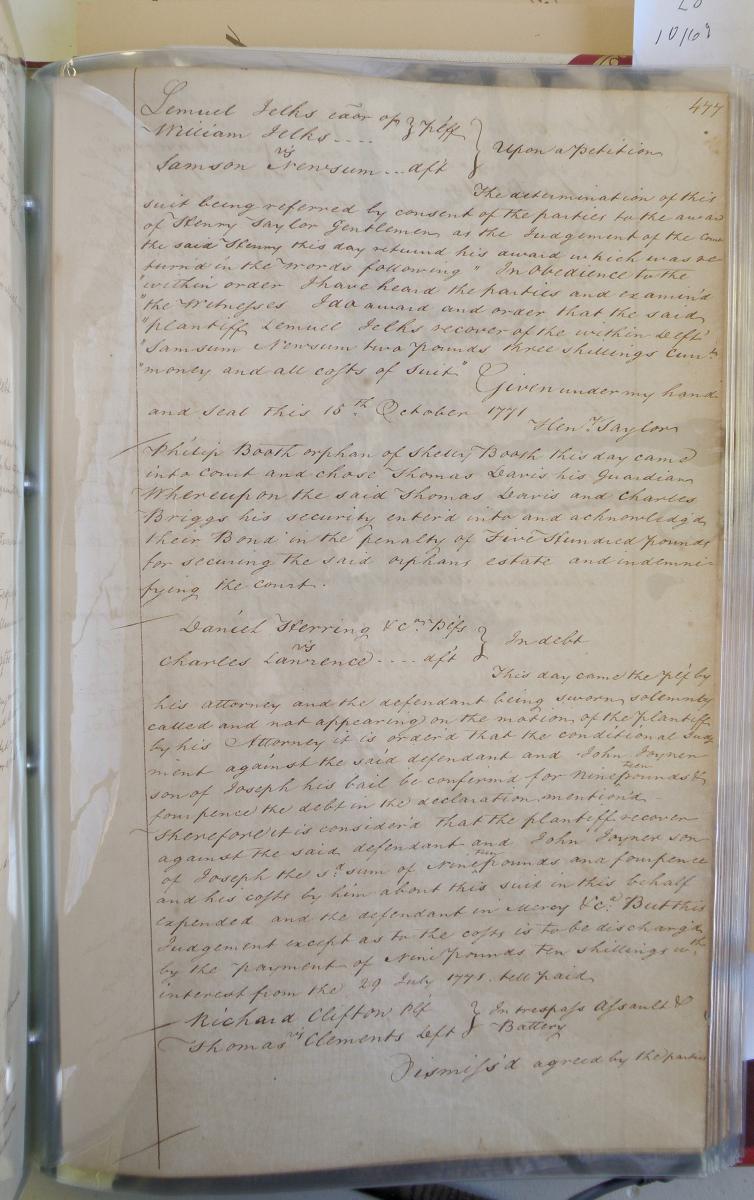 10/6
477
Lemuel Jelks exor of } Plff
William Jelks ....
vs
Samson Newsum ... dft
} Upon a Petition
The determination of this
suit being referred by consent of the parties to the award
of Henry Taylor Gentleman, as the Judgement of the Court
the said Henry this day returnd his award which was re
turn'd in the words following " In Obedience to the
within order I have heard the parties and examin'd
"the Witnesses I do award and order that the said
"plantiff Lemuel Jelks recover of the within Deft
"Samsum Newsum two pounds three shillings Curr.t
"money and all costs of suit" Given under my hand
and seal this 15th October 1771
Hen.y Taylor
Philip Booth orphan of Shelly Booth this day came
into Court and chose Thomas Davis his Guardian
Whereupon the said Thomas Davis and Charles
Briggs his security enter'd into and acknowledg'd
their Bond in the penalty of Five Hundred pounds
for securing the said orphans estate and indemni-
fying the court.
Daniel Herring & c.o Plfs
vs
Charles Lawrence .... dft
} In debt
This day came the plf by
his attorney and the defendant being sworn solemnly
called and not appearing on the motion of the plantiff
by his Attorney it is order'd that the conditional Judg
ment against the said defendant and John Joyner
son of Joseph his bail be confirm'd for Nineteen pounds &
fourpence the debt in the declaration mention'd -
Therefore it is consider'd that the plantiff recover
against the said defendant and John Joyner son
of Joseph the s.d sum of Nineteen pounds and fourpence
and his costs by him about this suit in this behalf
expended and the defendant in Mercy & c.a But this
Judgement except as to the costs is to be discharg'd
by the payment of Nine pounds ten shillings w.th
interest from the 29 July 1771. till paid
Richard Clifton Plf
vs
Thomas Clements Deft
} In trespass Assault &
Battery
Dismiss'd agreed by the parties